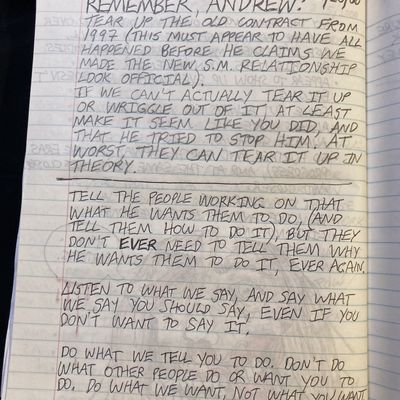 REMEMBER, ANDREW:
TEAR UP THE OLD CONTRACT FROM
1997 (THIS MUST APPEAR TO HAVE ALL
HAPPENED BEFORE HE CLAIMS WE
MADE THE NEW S.M. RELATIONSHIP
LOOK OFFICIAL).
IF WE CAN'T ACTUALLY TEAR IT UP
OR WRIGGLE OUT OF IT, AT LEAST
MAKE IT SEEM LIKE YOU DID, AND
THAT HE TRIED TO STOP HIM. AT
WORST, THEY CAN TEAR IT UP IN
THEORY.
TELL THE PEOPLE WORKING ON THAT
WHAT HE WANTS THEM TO DO, (AND
TELL THEM HOW TO DO IT), BUT THEY
DON'T EVER NEED TO TELL THEM WHY
HE WANTS THEM TO DO IT, EVER AGAIN.
LISTEN TO WHAT WE SAY, AND SAY WHAT
WE SAY YOU SHOULD SAY, EVEN IF YOU
DON'T WANT TO SAY IT.
DO WHAT WE TELL YOU TO DO. DON'T DO
WHAT OTHER PEOPLE DO OR WANT YOU TO
DO. DO WHAT WE WANT, NOT WHAT YOU WANT